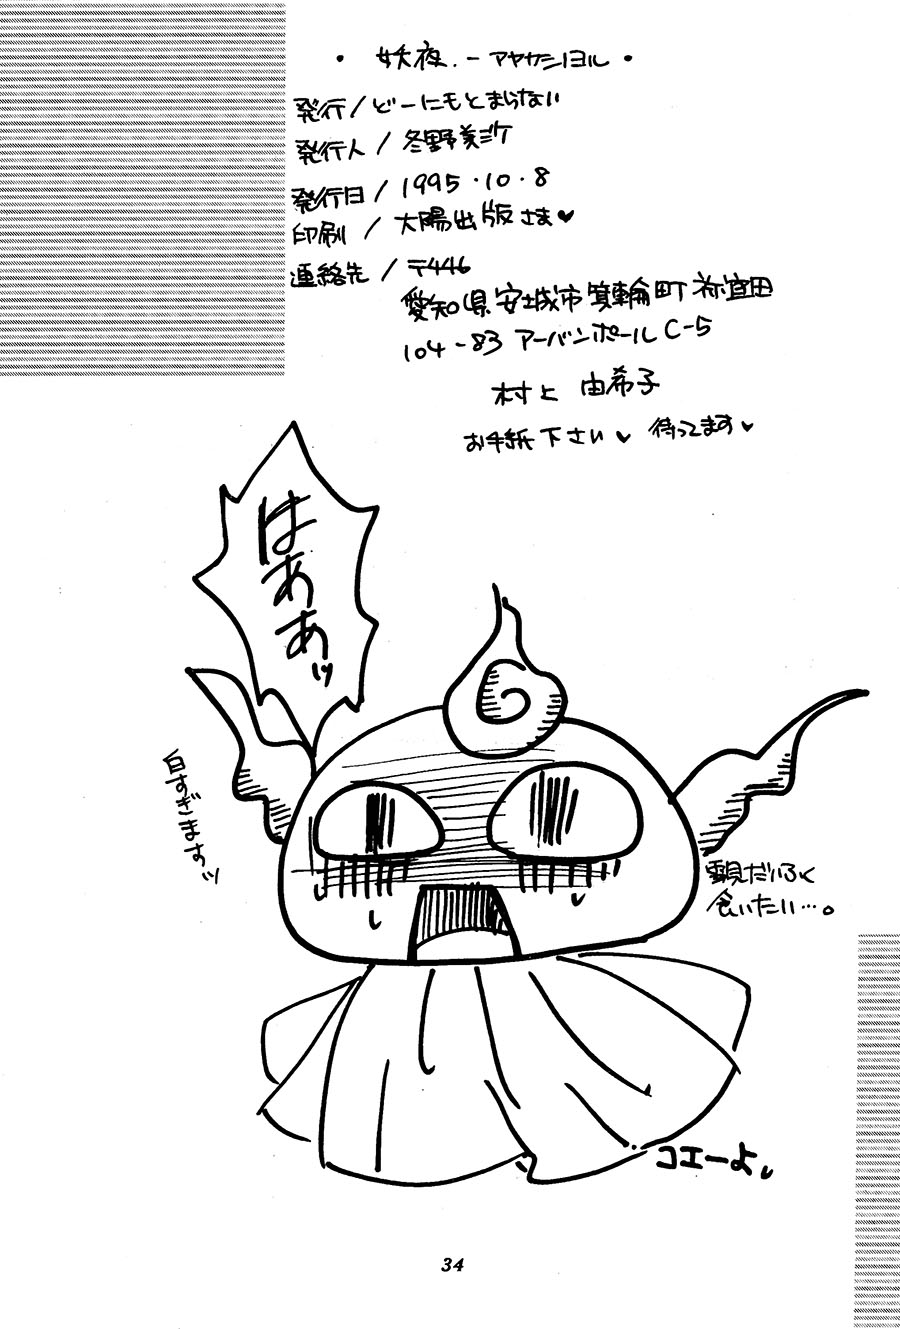 ・妖夜.－アヤカシノヨル・
発行/どーにもとまらない
発行人/冬野美沙
発行日/1995・10・8
印刷/大陽出版さま♥
連絡先/〒446
愛知県安城市箕輪町祢宜田
104-83 アーバンポールC-5
村上 由希子
お手紙下さい♥ 待ってます♥
はああッ
白すぎますッ
食いたい…。
コエーよ
34